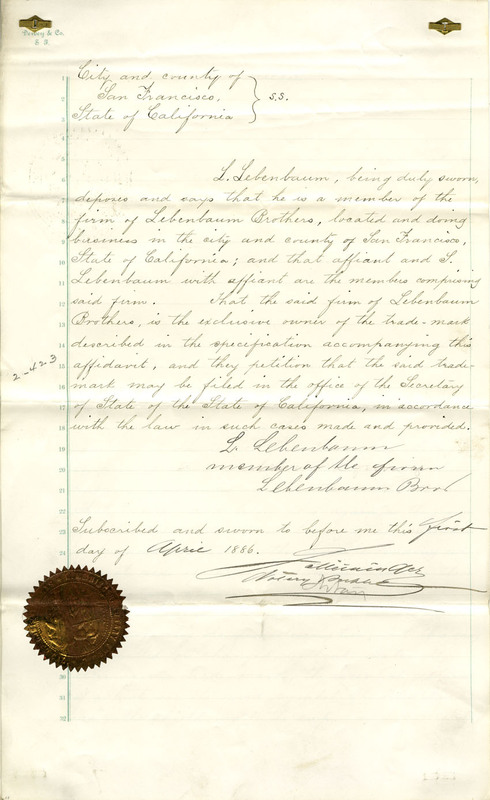 City and county of
San Francisco,
State of California
s.s.
L. Lebenbaum, being duly sworn,
deposes and says that he is a member of the
firm of Lebenbaum Brothers, located and doing
business in the city and county of San Francisco,
State of California; and that affiant and S.
Lebenbaum with affiant are the members comprising
said firm. That the said firm of Lebenbaum
Brothers, is the exclusive owner of the trade-mark
described in the specification accompanying this
affidavit, and they petition that the said trade-
mark may be filed in the office of the Secretary
of State of the State of California, in accordance
with the law in such cases made and provided.
L. Lebenbaum
member of the firm
Lebenbaum Bros
Subscribed and sworn to before me this first
day of April 1886.
Notary Public
2-423